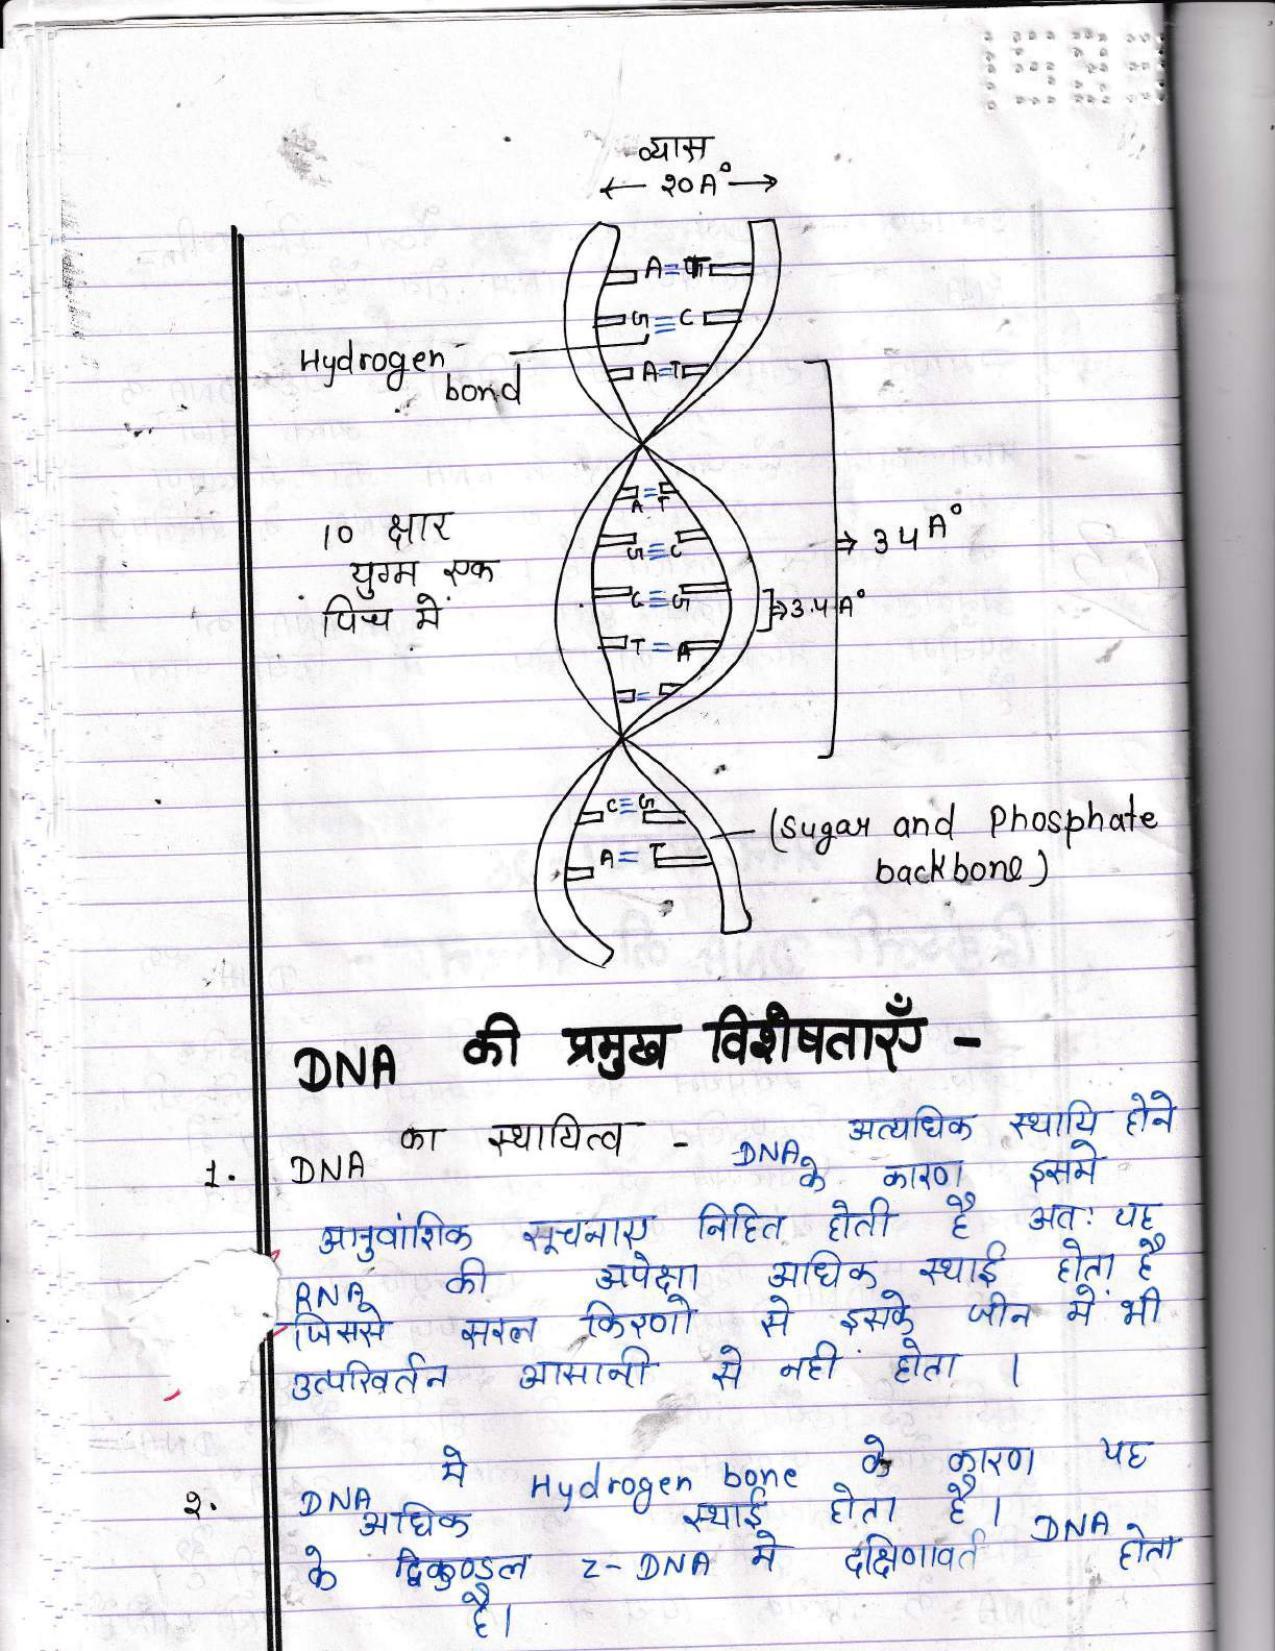 व्यास
← 20A° →
A=T
G≡C
Hydrogen bond
A=T
A=T
10 क्षार
युग्म एक
पिच में
G≡C
→ 34A°
C≡G
→3.4A°
T=A
=
C≡G
(Sugar and Phosphate
backbone)
A=T
DNA की प्रमुख विशेषताएँ -
1. DNA का स्थायित्व - DNA अत्यधिक स्थायि होने
के कारण इसमे
आनुवांशिक सूचनाए निहित होती है अतः यह
RNA की अपेक्षा अधिक स्थाई होता है
जिससे सरल किरणो से इसके जीन में भी
उत्परिवर्तन आसानी से नही होता ।
2. DNA मे Hydrogen bone के कारण यह
अधिक स्थाई होता है। DNA
के द्विकुण्डल Z-DNA मे दक्षिणावर्त होता
है।